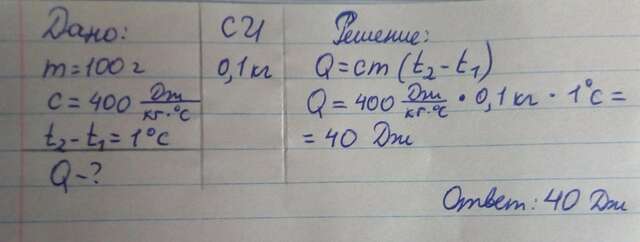 Дано: СИ Решение:
m=100г 0,1кг Q=cm(t₂-t₁)
c=400 Дж/кг·°С Q=400 Дж/кг·°С · 0,1кг · 1°С=
t₂-t₁=1°С =40 Дж
Q-?
Ответ: 40 Дж